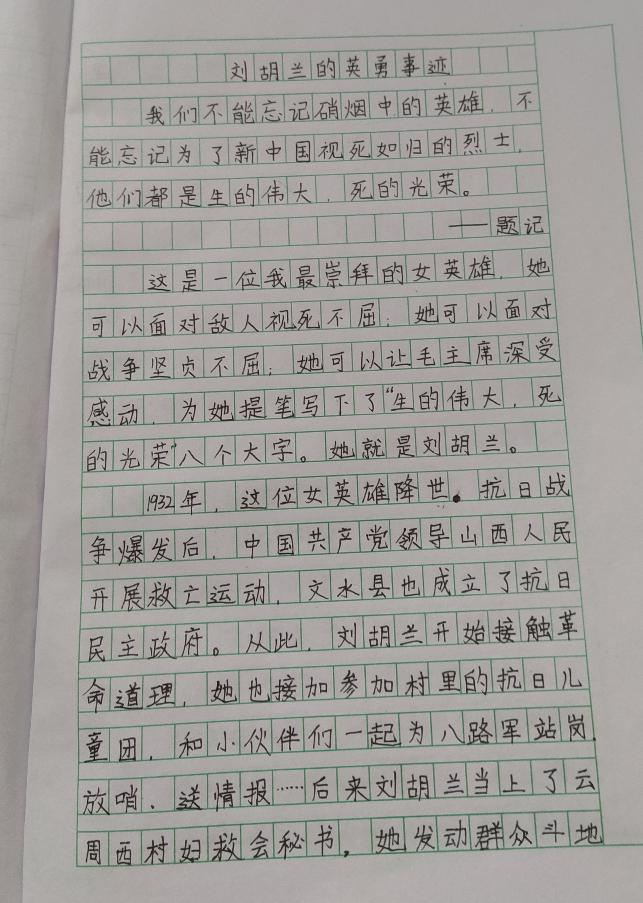 刘胡兰的英勇事迹
我们不能忘记硝烟中的英雄，不
能忘记为了新中国视死如归的烈士，
他们都是生的伟大，死的光荣。
——题记
这是一位我最崇拜的女英雄，她
可以面对敌人视死不屈；她可以面对
战争坚贞不屈；她可以让毛主席深受
感动，为她提笔写下了“生的伟大，死
的光荣”八个大字。她就是刘胡兰。
1932年，这位女英雄降世。抗日战
争爆发后，中国共产党领导山西人民
开展救亡运动，文水县也成立了抗日
民主政府。从此，刘胡兰开始接触革
命道理，她也接加参加村里的抗日儿
童团，和小伙伴们一起为八路军站岗、
放哨、送情报……后来刘胡兰当上了云
周西村妇救会秘书，她发动群众斗地